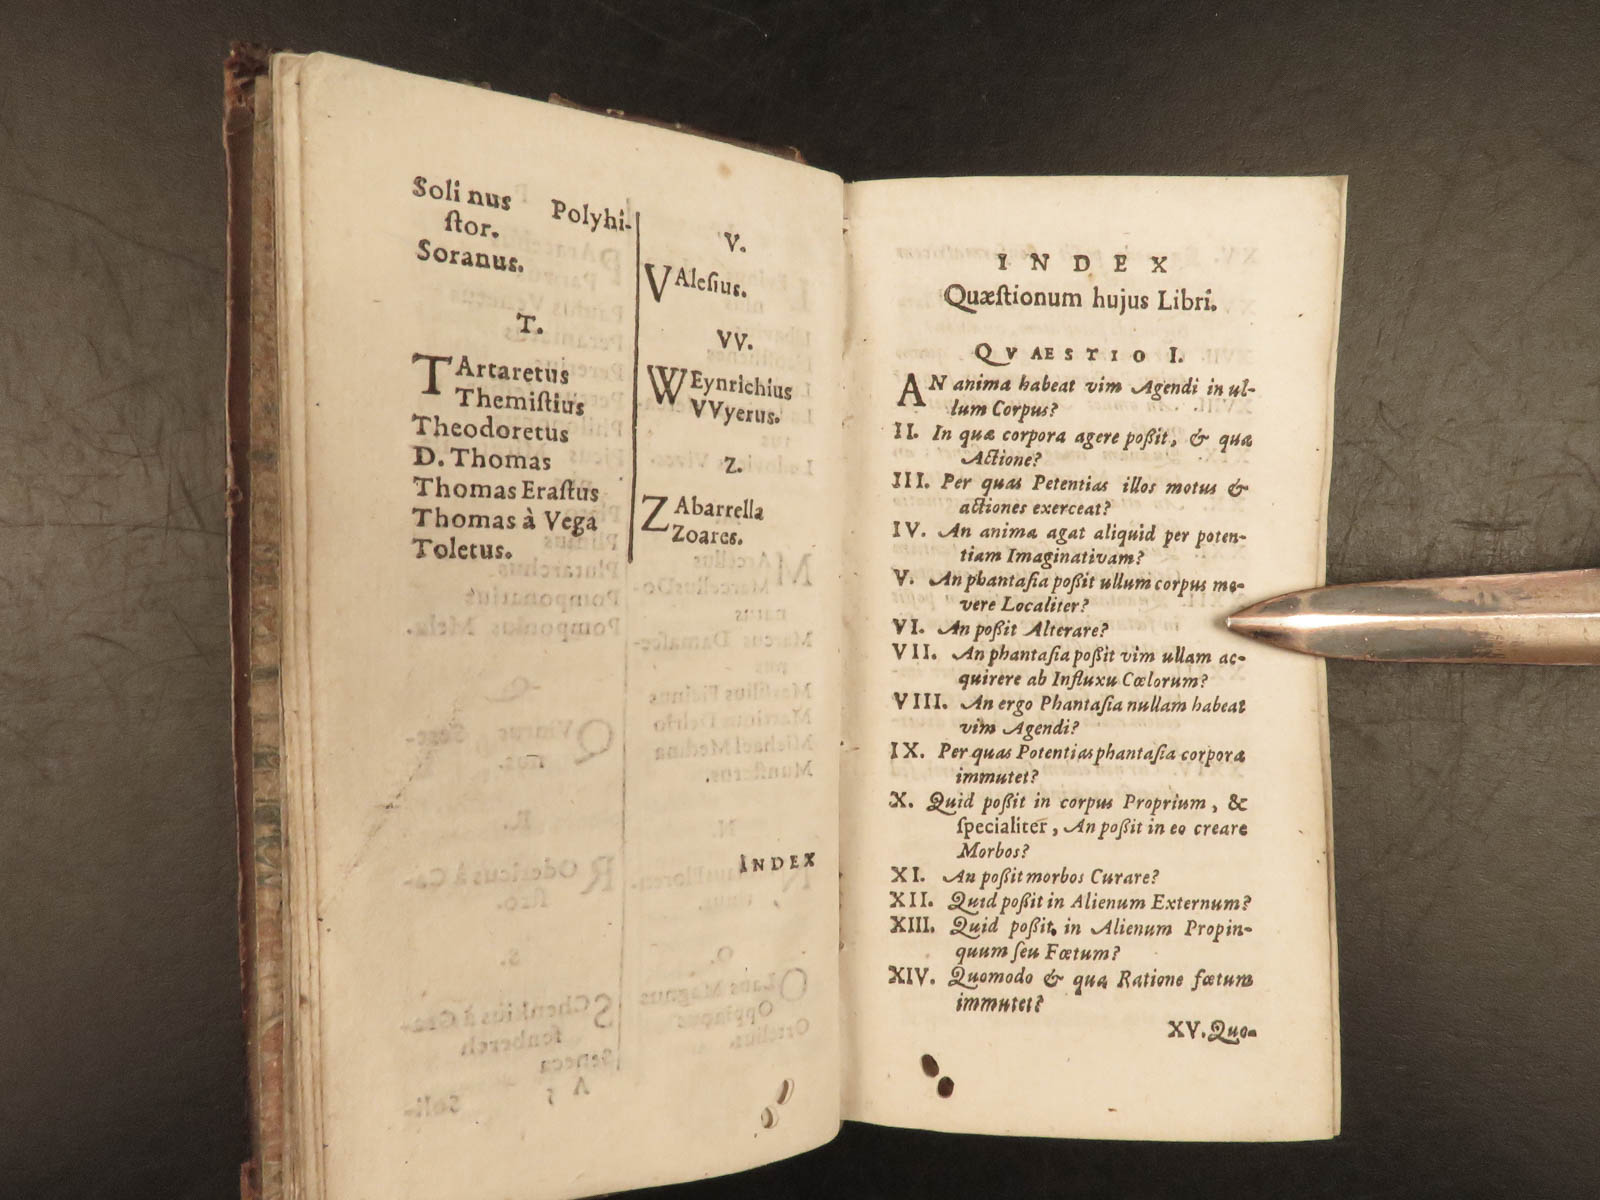 Solinus Polyhi-
ſtor.
Soranus.
T.
TArtaretus
Themiſtius
Theodoretus
D. Thomas
Thomas Eraſtus
Thomas à Vega
Toletus.
V.
VAleſius.
VV.
WEynrichius
VVyerus.
Z.
ZAbarrella
Zoares.
INDEX
INDEX
Quæſtionum hujus Libri.
QVAESTIO I.
AN anima habeat vim Agendi in ul-
lum Corpus?
II. In quæ corpora agere poßit, & quæ
Actione?
III. Per quas Petentias illos motus &
actiones exerceat?
IV. An anima agat aliquid per poten-
tiam Imaginativam?
V. An phantaſia poßit ullum corpus mo-
vere Localiter?
VI. An poßit Alterare?
VII. An phantaſia poßit vim ullam ac-
quirere ab Influxu Cœlorum?
VIII. An ergo Phantaſia nullam habeat
vim Agendi?
IX. Per quas Potentias phantaſia corpora
immutet?
X. Quid poßit in corpus Proprium, &
ſpecialiter, An poßit in eo creare
Morbos?
XI. An poßit morbos Curare?
XII. Quid poßit in Alienum Externum?
XIII. Quid poßit in Alienum Propin-
quum ſeu Fœtum?
XIV. Quomodo & qua Ratione fœtum
immutet?
XV. Quo-